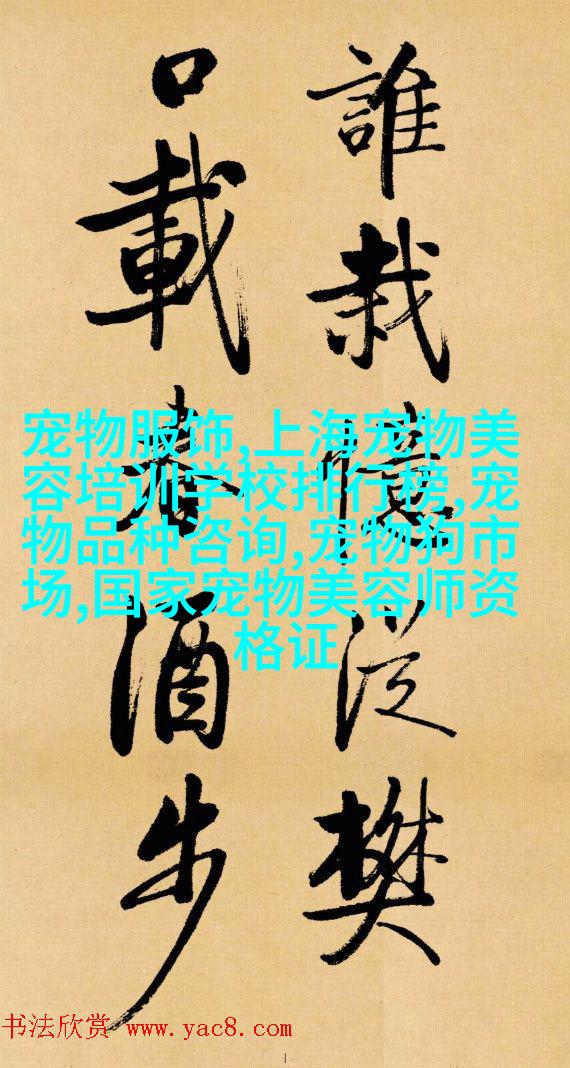 誰栽憶從樊
口載春酒步
宠物服饰,上海宠物美
容培训学校排行榜,宠
物品种咨询,宠物狗市
场,国家宠物美容师资
格证
书法欣赏 www.yac8.com